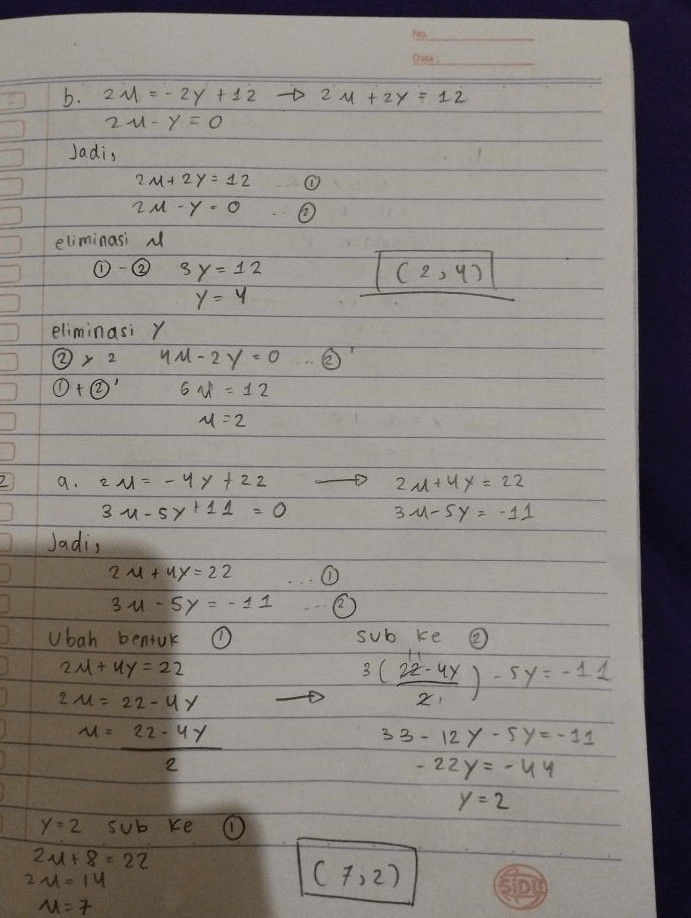 No.
Date:
b. 2x = -2y + 12 → 2x + 2y = 12
2x - y = 0
Jadi,
2x + 2y = 12 ... ①
2x - y = 0 ... ②
eliminasi x
① - ② 3y = 12
(2, 4)
y = 4
eliminasi y
② x 2 4x - 2y = 0 ... ②'
① + ②' 6x = 12
x = 2
2 a. 2x = -4y + 22 → 2x + 4y = 22
3x - 5y + 11 = 0 3x - 5y = -11
Jadi,
2x + 4y = 22 ... ①
3x - 5y = -11 ... ②
Ubah bentuk ①
2x + 4y = 22
2x = 22 - 4y →
x = 22 - 4y
2
sub ke ②
11
3(22 - 4y) - 5y = -11
2 1
33 - 12y - 5y = -11
-22y = -44
y = 2
y = 2 sub ke ①
2x + 8 = 22
2x = 14
x = 7
(7, 2)
SIDU